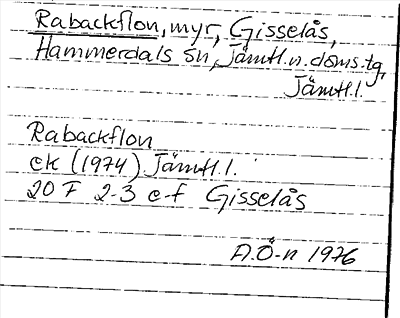 Rabackflon, myr, Gisselås,
Hammerdals sn, Jämtl. n. doms.tg,
Jämtl.l.
Rabackflon
ek (1974) Jämtl.l.
20 F 2-3 e-f Gisselås
A.Ö-n 1976